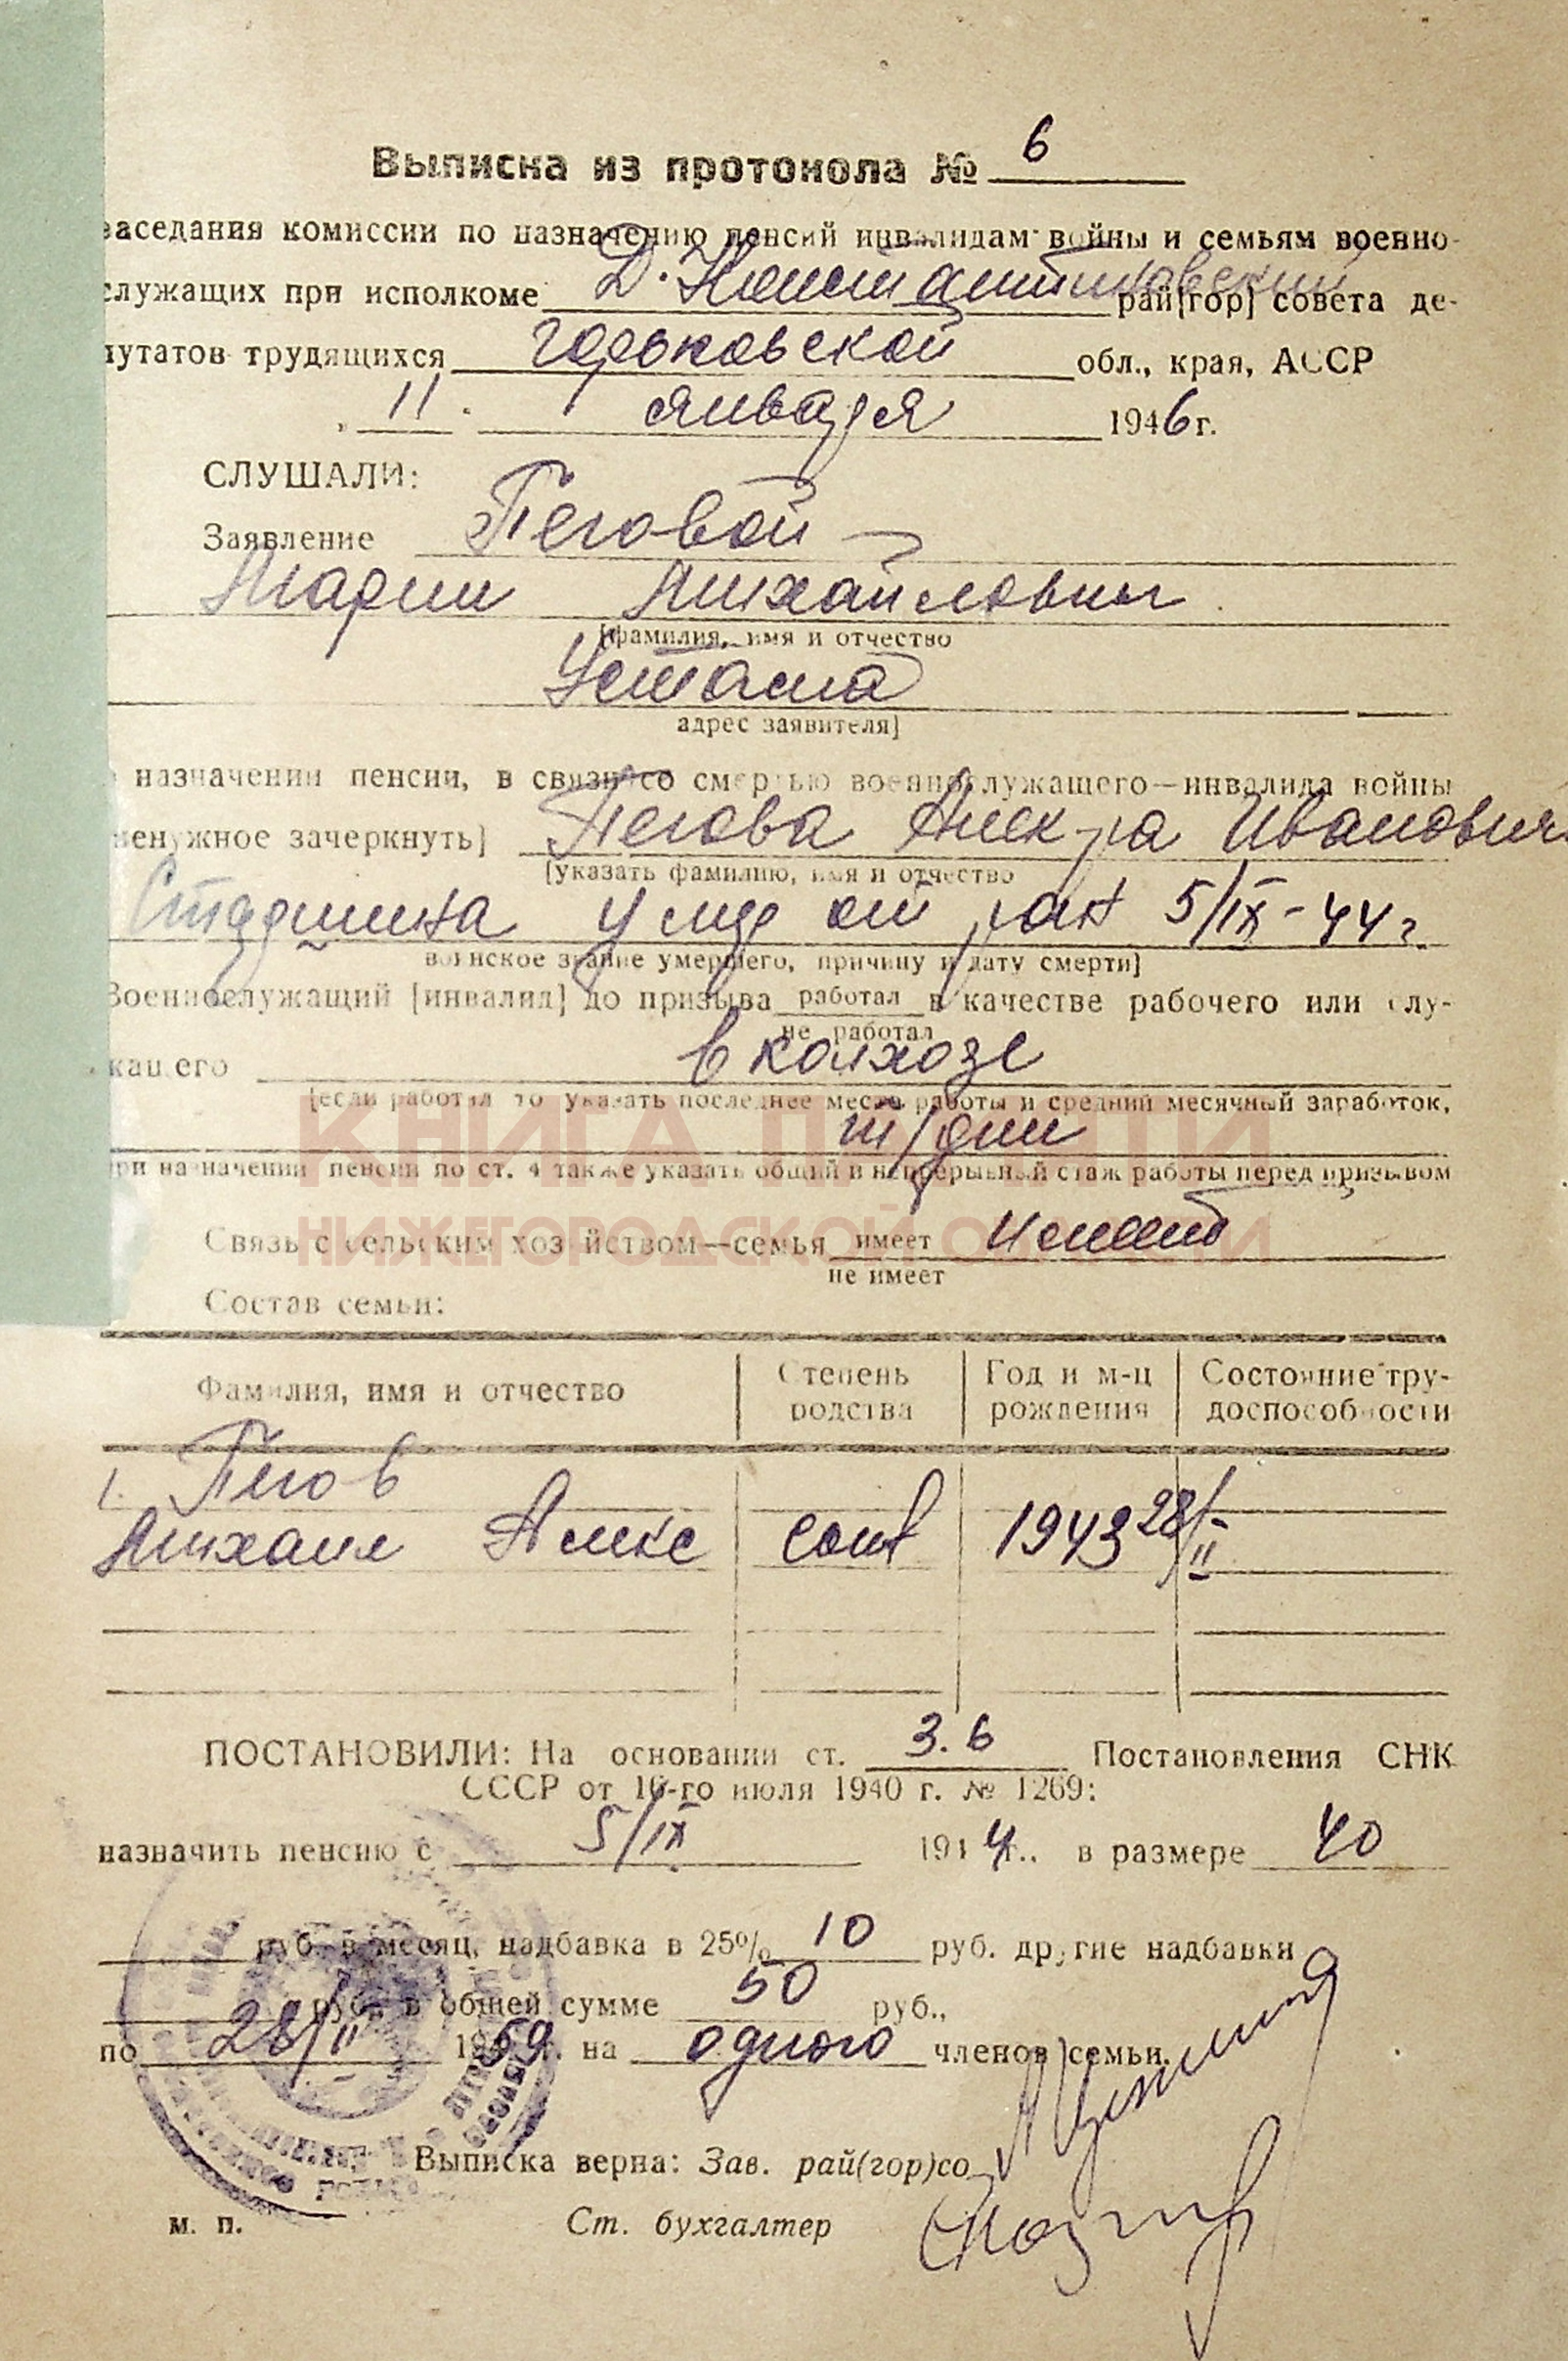 Выписка из протокола № 6
заседания комиссии по назначению пенсий инвалидам войны и семьям военно-
служащих при исполкоме Д. Константиновский рай[гор] совета де-
путатов трудящихся Горьковской обл., края, АССР
„ 11. января 1946 г.
СЛУШАЛИ:
Заявление Пеговой
Марии Михайловны
[фамилия, имя и отчество
адрес заявителя]
о назначении пенсии, в связи со смертью военнослужащего—инвалида войны
[ненужное зачеркнуть] Пегова Алек-ра Иванович
[указать фамилию, имя и отчество
Старшина умер от ран 5/IX-44 г.
воинское звание умершего, причину и дату смерти]
Военнослужащий [инвалид] до призыва работал в качестве рабочего или слу-
не работал
жащего в колхозе
[если работал то указать последнее место работы и средний месячный заработок,
т/дни
при назначении пенсии по ст. 4 также указать общий и непрерывный стаж работы перед призывом
КНИГА ПАМЯТИ
НИЖЕГОРОДСКОЙ ОБЛАСТИ
Связь с сельским хозяйством—семья имеет имеет
не имеет
Состав семьи:
Фамилия, имя и отчество Степень родства Год и м-ц рождения Состояние трудоспособности
1. Пегов
Михаил Алекс сын 1943 28/II
ПОСТАНОВИЛИ: На основании ст. 3.6 Постановления СНК
СССР от 16-го июля 1940 г. № 1269:
назначить пенсию с 5/IX 1944 г.. в размере 40
руб. в месяц, надбавка в 25% 10 руб. другие надбавки
руб. в общей сумме 50 руб.,
по 28/II 1959 г. на одного членов семьи.
Выписка верна: Зав. рай(гор)со
м. п. Ст. бухгалтер